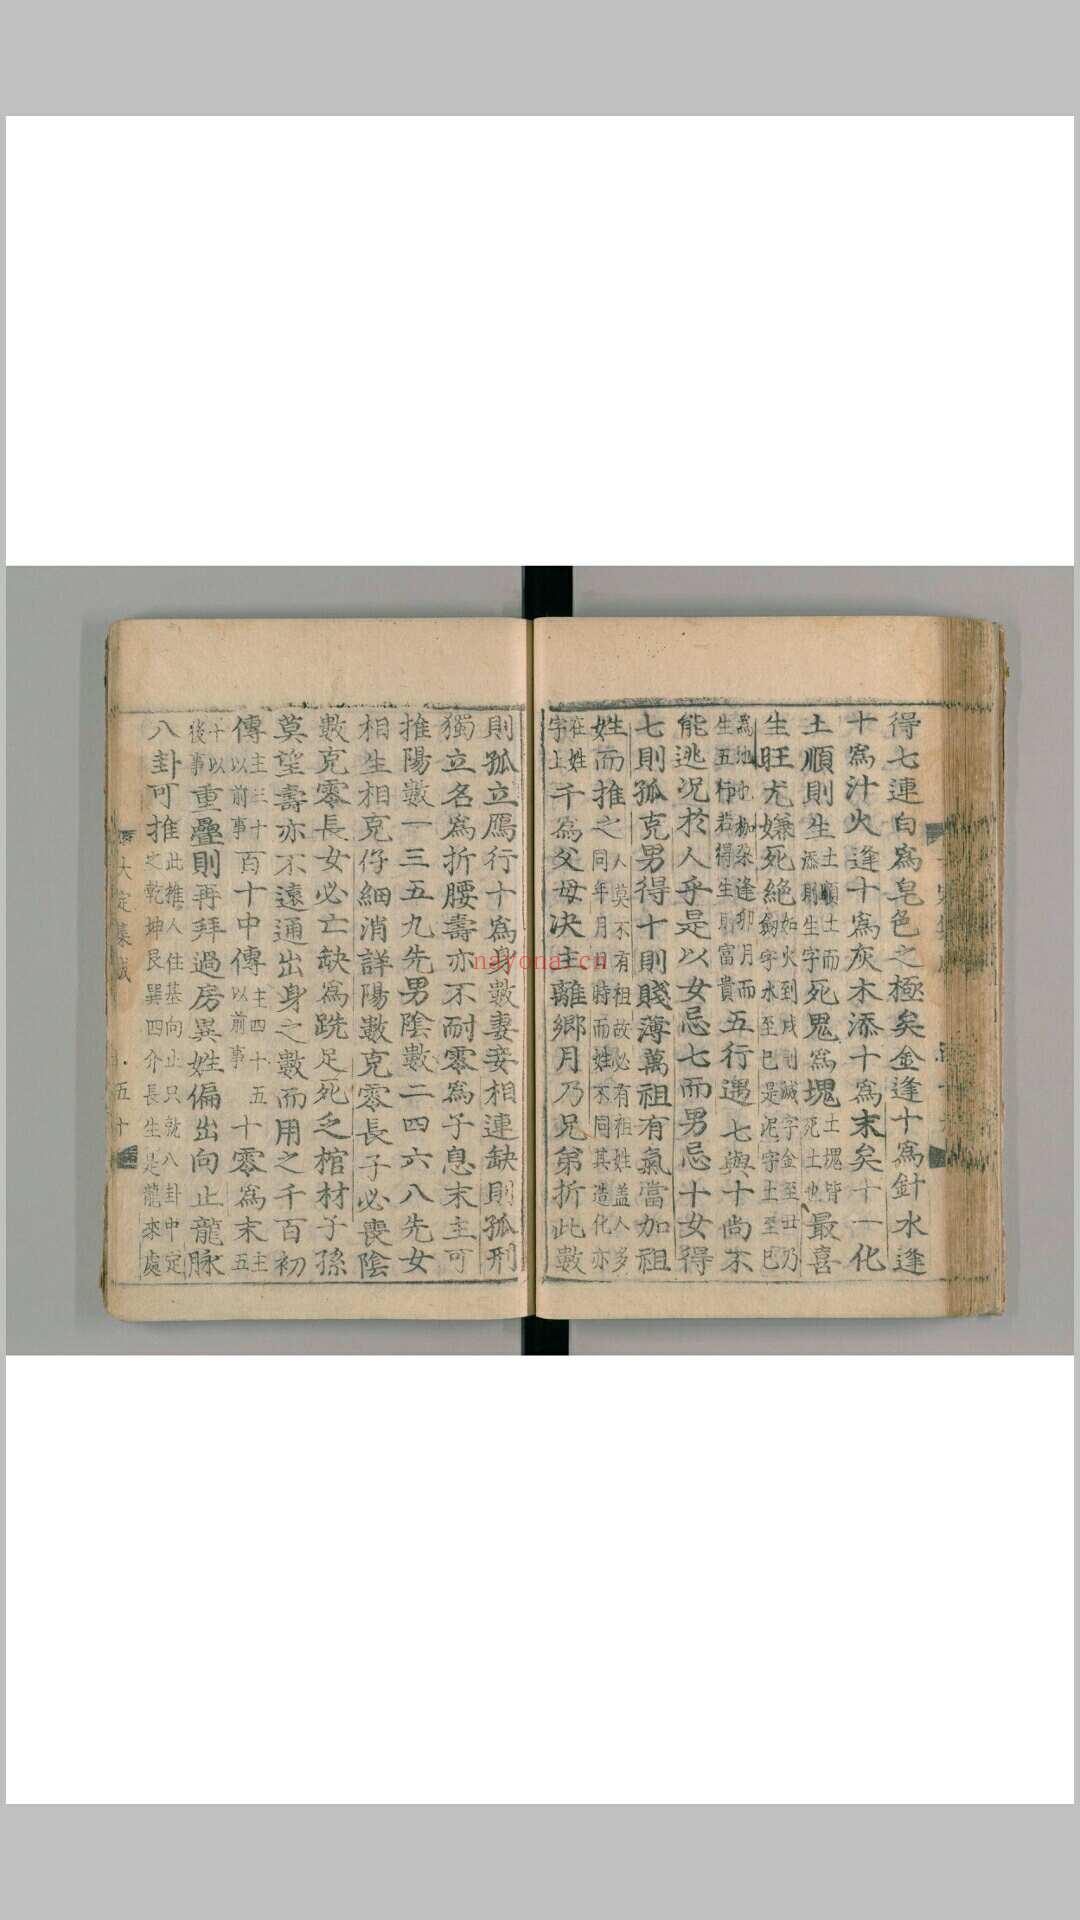 得七連白爲皂色之極矣金逢十爲針水逢
十爲汁火逢十爲灰木添十爲末矣十一化
土順則生土順土而添則生字死鬼爲塊土塊皆死土也最喜
生旺尤嫌死絕如火到戌則滅字金至丑乃鈕字水至巳是泥字土至巳
爲池也柳朶逢卯月而生五行若得生則富貴五行遇七與十尚不
能逃况於人乎是以女忌七而男忌十女得
七則孤克男得十則賤薄萬祖有氣當加祖
姓而推之人莫不有祖故必有祖姓盖人多同年月日時而姓不同其造化亦
在姓字上千爲父母决主離鄉月乃兄弟折此數
則孤立鴈行十爲身數妻妾相連缺則孤刑
獨立名爲折腰壽亦不耐零爲子息末主可
推陽數一三五九先男陰數二四六八先女
相生相克仔細消詳陽數克零長子必喪陰
數克零長女必亡缺爲跣足死乏棺材子孫
莫望壽亦不遠通出身之數而用之千百初
傳主三十以前事百十中傳主四十五以前事十零爲末主五
十以後事重疊則再拜過房異姓偏出向止龍脉
八卦可推此推人住基向止只就八卦中定之乾坤艮巽四介長生是龍來處
大定集成
五十
nayona.cn